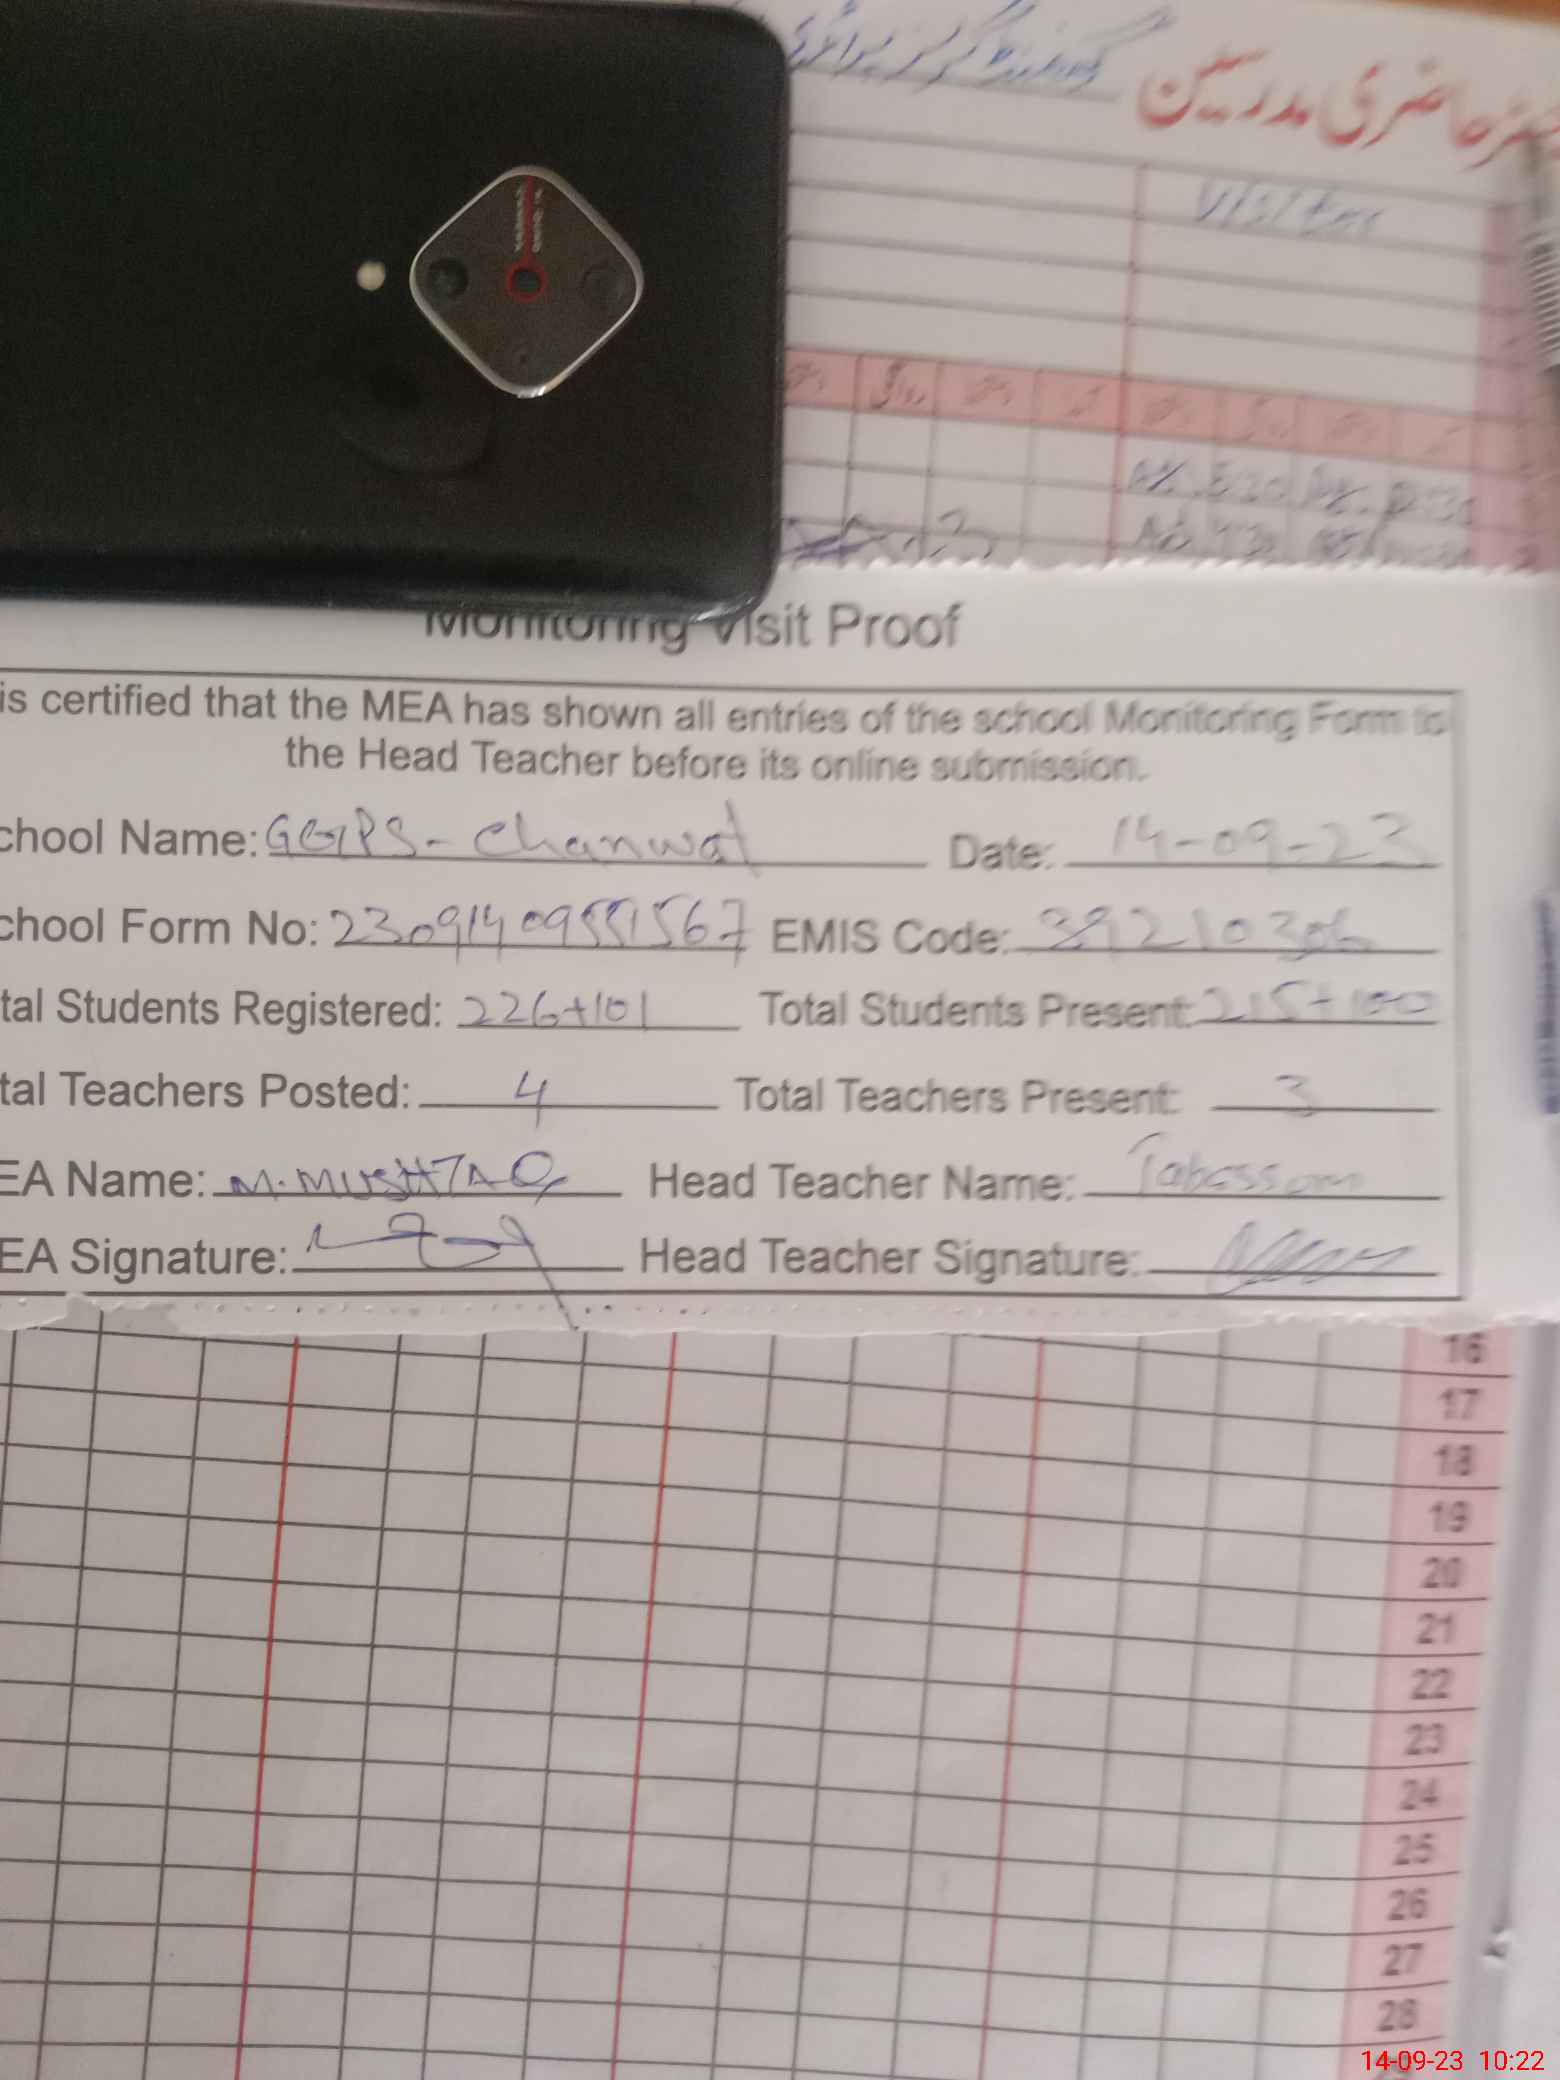 گورنمنٹ گرلز پرائمری
حاضری مدرسین
Visitor
Monitoring Visit Proof
is certified that the MEA has shown all entries of the school Monitoring Form to
the Head Teacher before its online submission.
chool Name: GGPS - Chanwat Date: 14-09-23
chool Form No: 23091409551567 EMIS Code: 39210306
tal Students Registered: 226+101 Total Students Present: 215+100
tal Teachers Posted: 4 Total Teachers Present: 3
EA Name: M. MUSHTAQ Head Teacher Name: Tabassum
EA Signature: Head Teacher Signature:
16
17
18
19
20
21
22
23
24
25
26
27
28
14-09-23 10:22